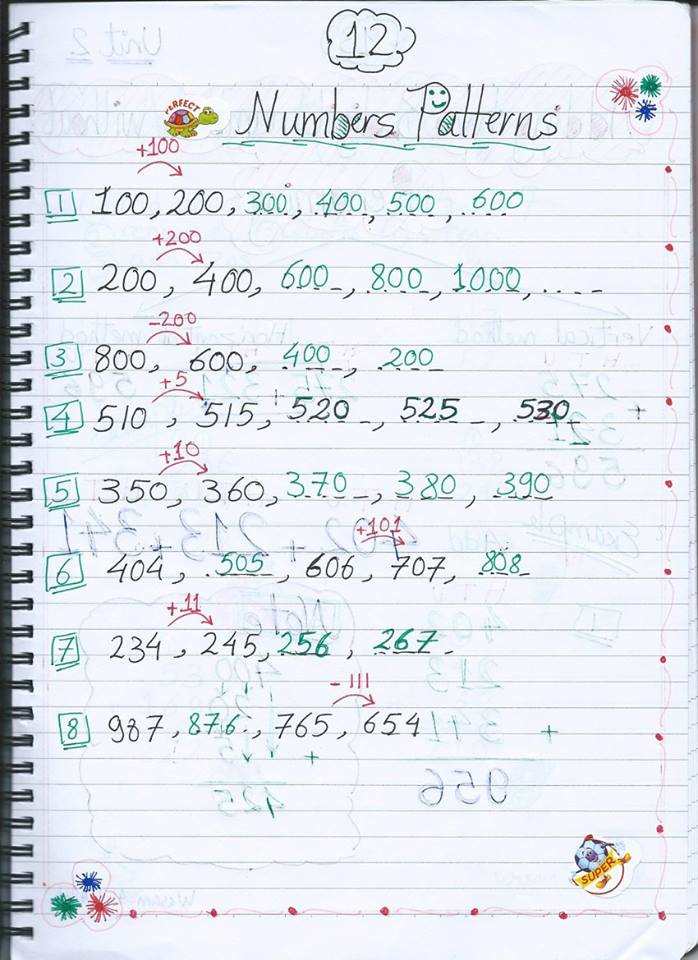 12
PERFECT
Numbers Patterns
+100
1 100, 200, 300, 400, 500, 600
+200
2 200, 400, 600, 800, 1000, ....
-200
3 800, 600, 400, 200
+5
4 510, 515, 520, 525, 530
+10
5 350, 360, 370, 380, 390
+101
6 404, 505, 606, 707, 808
+11
7 234, 245, 256, 267
-111
8 987, 876, 765, 654
SUPER